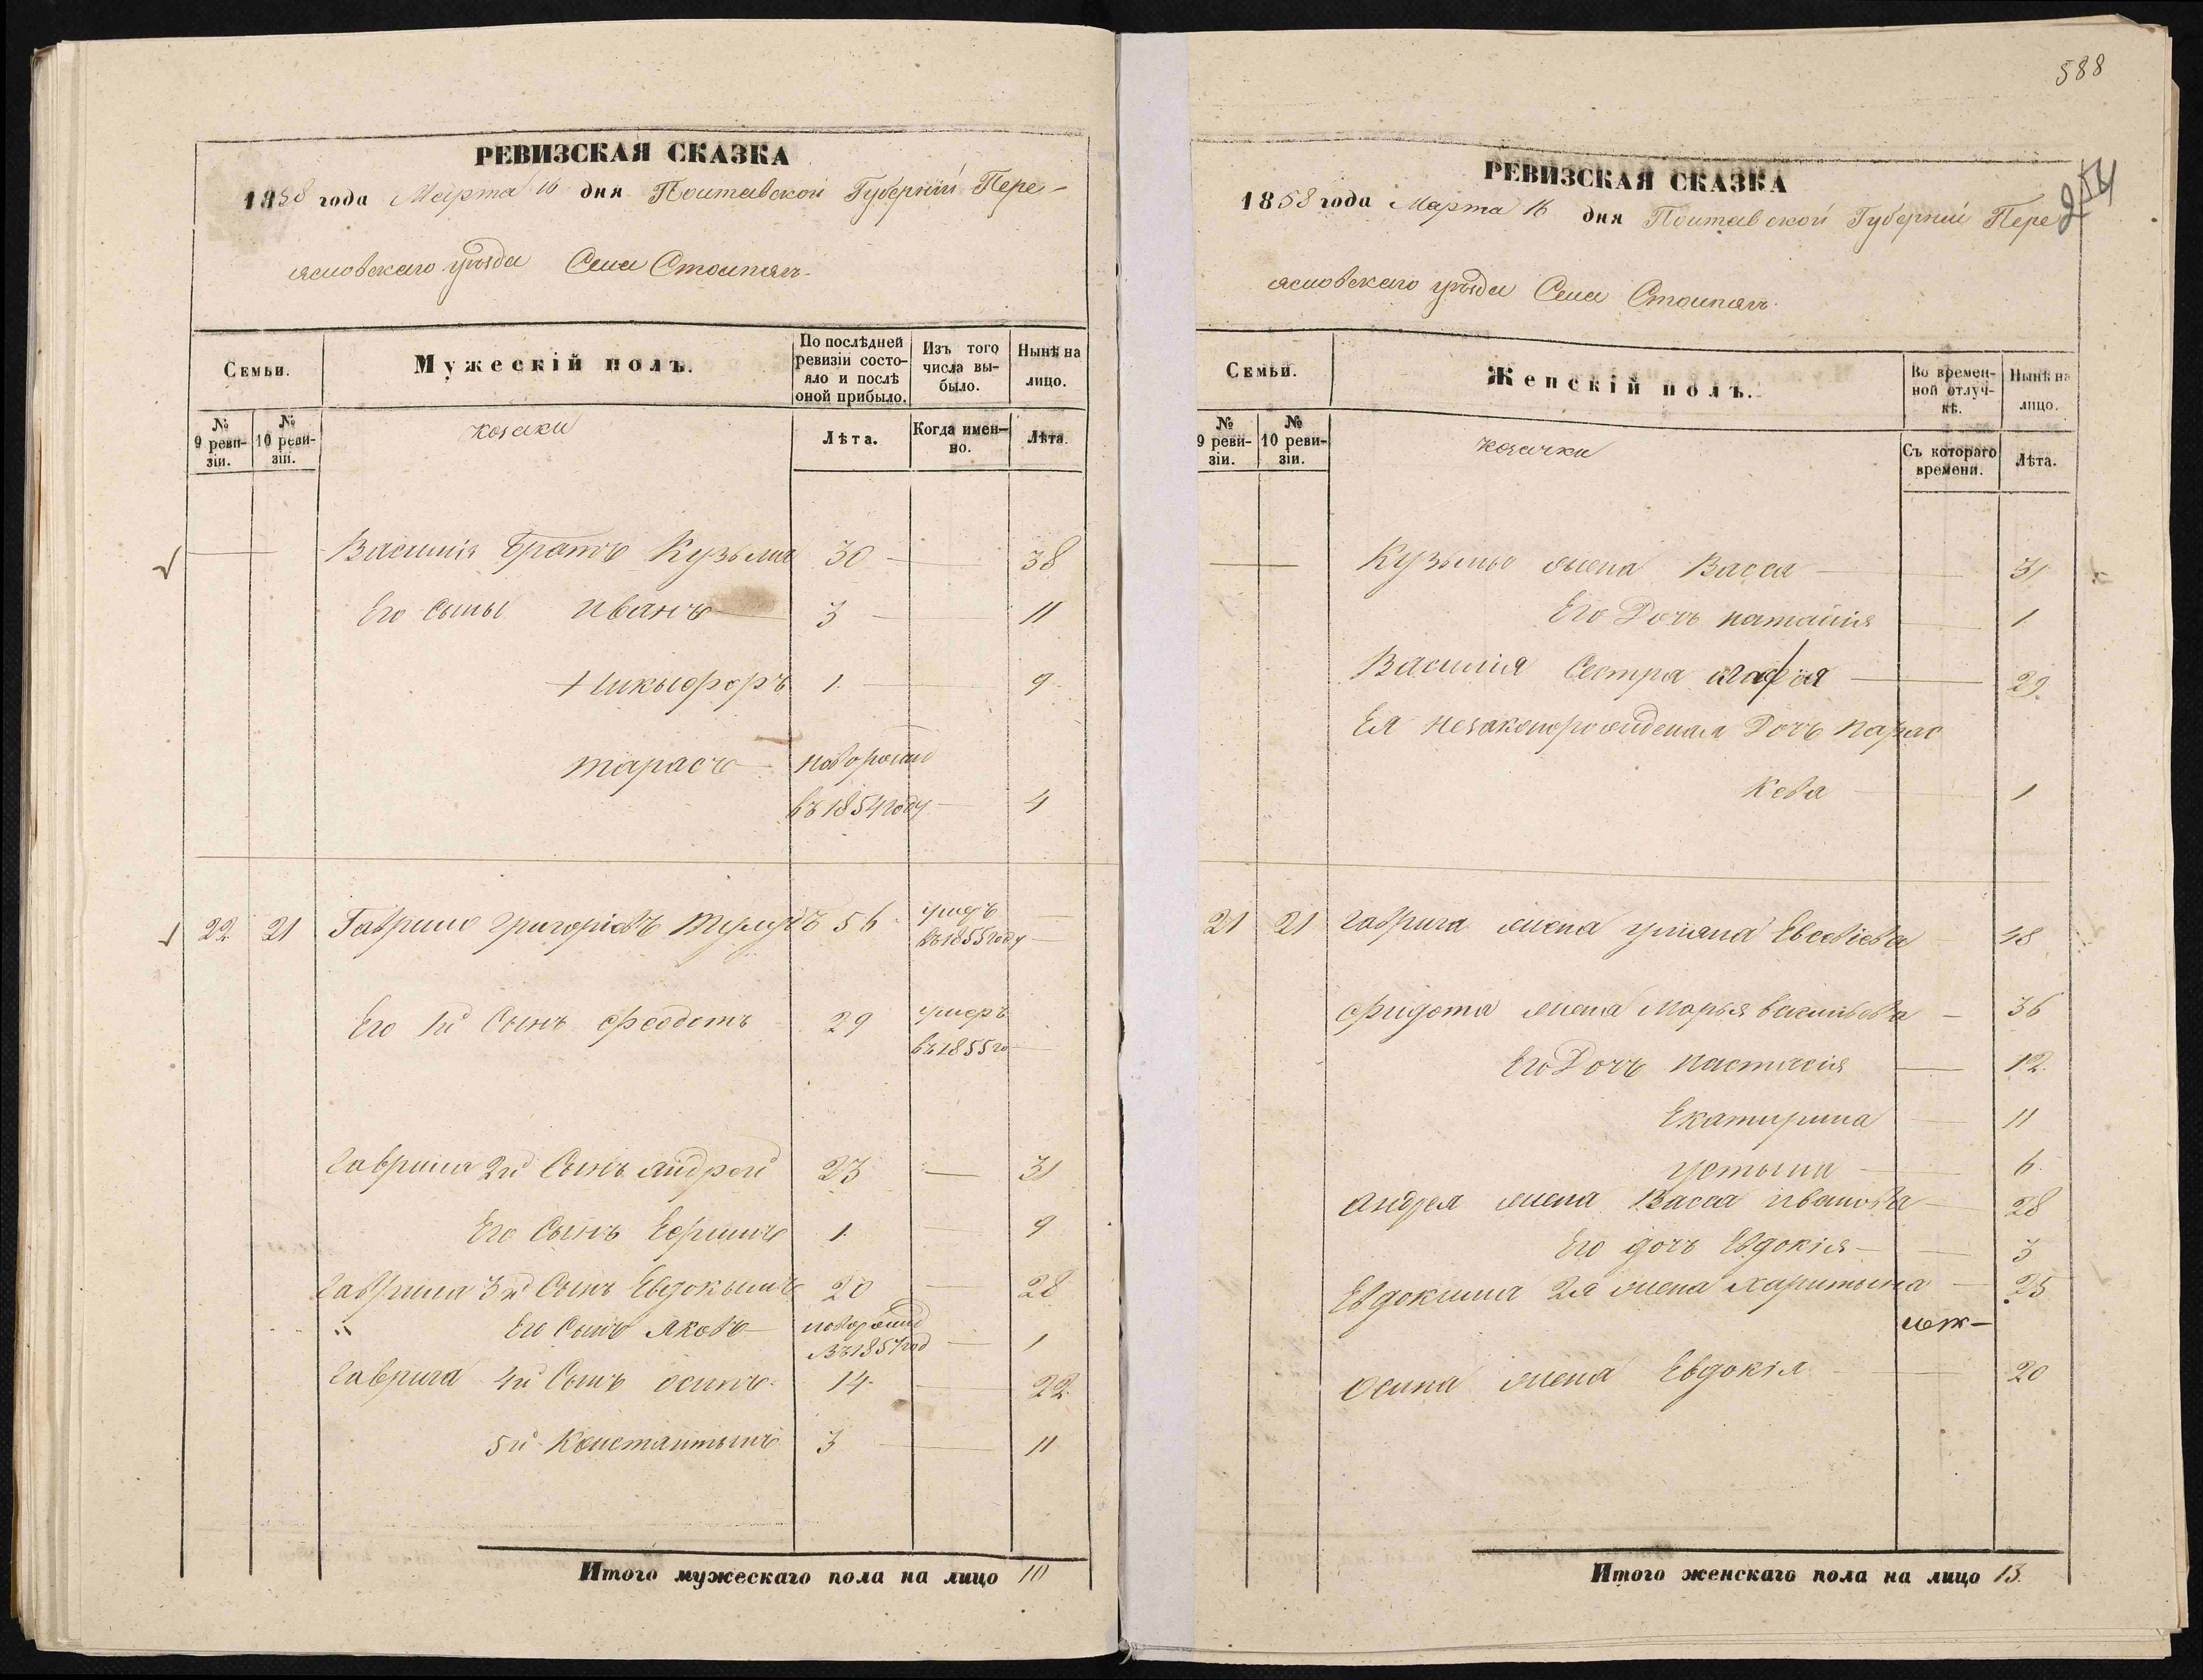 РЕВИЗСКАЯ СКАЗКА
1858 года Марта 16 дня Полтавской Губерніи Пере-
яславскаго уѣзда Села Столпягъ.
Семьи.
Мужескій полъ.
По послѣдней ревизіи состояло и послѣ оной прибыло.
Изъ того числа выбыло.
Нынѣ на лицо.
№ 9 ревизіи.
№ 10 ревизіи.
козаки
Лѣта.
Когда именно.
Лѣта.
Василія братъ Кузьма 30 — 38
Его сыны Иванъ 3 — 11
Никыфоръ 1. — 9.
Тарасъ новорожд
въ 1854 году — 4
22 21 Гаврило Григоріевъ 56 умеръ
въ 1855 году —
Его 1й Сынъ Феодотъ 29 умеръ
въ 1855 го —
Гаврила 2й Сынъ Андрей 23 — 31
Его Сынъ Ефимъ 1. — 9
Гаврила 3й Сынъ Евдокымъ 20 — 28
" Его Сынъ Яковъ новорожд
въ 1857 год — 1
Гаврила 4й Сынъ Осипъ 14. — 22.
5й Константынъ 3 — 11
Итого мужескаго пола на лицо 10
588
254
РЕВИЗСКАЯ СКАЗКА
1858 года Марта 16 дня Полтавской Губерніи Пере
яславскаго уѣзда Села Столпягъ.
Семьи.
Женскій полъ.
Во временной отлучкѣ.
Нынѣ на лицо.
№ 9 ревизіи.
№ 10 ревизіи.
козачки
Съ котораго времени.
Лѣта.
Кузьмы жена Васса — 31
Его Дочь Наталія — 1.
Василія Сестра Агафія — 29.
Ея незаконорожденая Дочь Парас
кева — 1
21 21 Гаврила жена Уліяна Евсевіева — 48
Фидота жена Марья Васильева — 36
Его Дочь Настасія — 12.
Екатирина — 11
Устына — 6.
Андрея жена Васса Иванова — 28
Его дочь Евдокія — 3
Евдокима 2я жена Харитына — 25
Осипа жена Евдокія — 20
Итого женскаго пола на лицо 13.